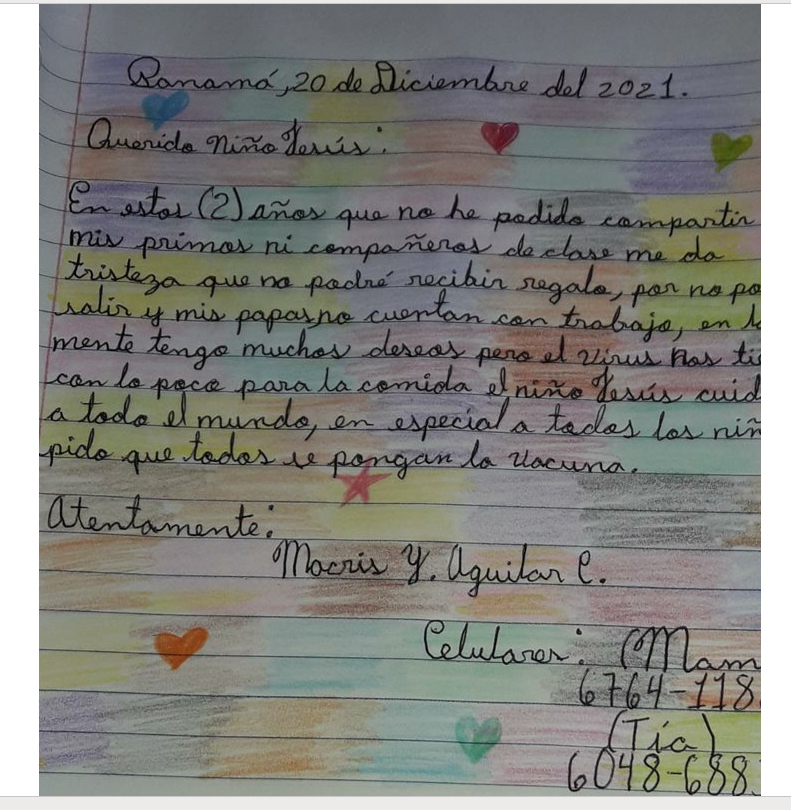 Panamá, 20 de Diciembre del 2021.
Querido niño Jesús:
En estos (2) años que no he podido compartir
mis primos ni compañeros de clase me da
tristeza que no podré recibir regalo, por no po
salir y mis papas no cuentan con trabajo, en l
mente tengo muchos deseos pero el virus nos ti
con lo poco para la comida el niño Jesús cuid
a todo el mundo, en especial a todos los niñ
pido que todos se pongan la vacuna.
Atentamente:
Macris Y. Aguilar C.
Celulares: (Mam
6764-118
(Tía)
6048-688